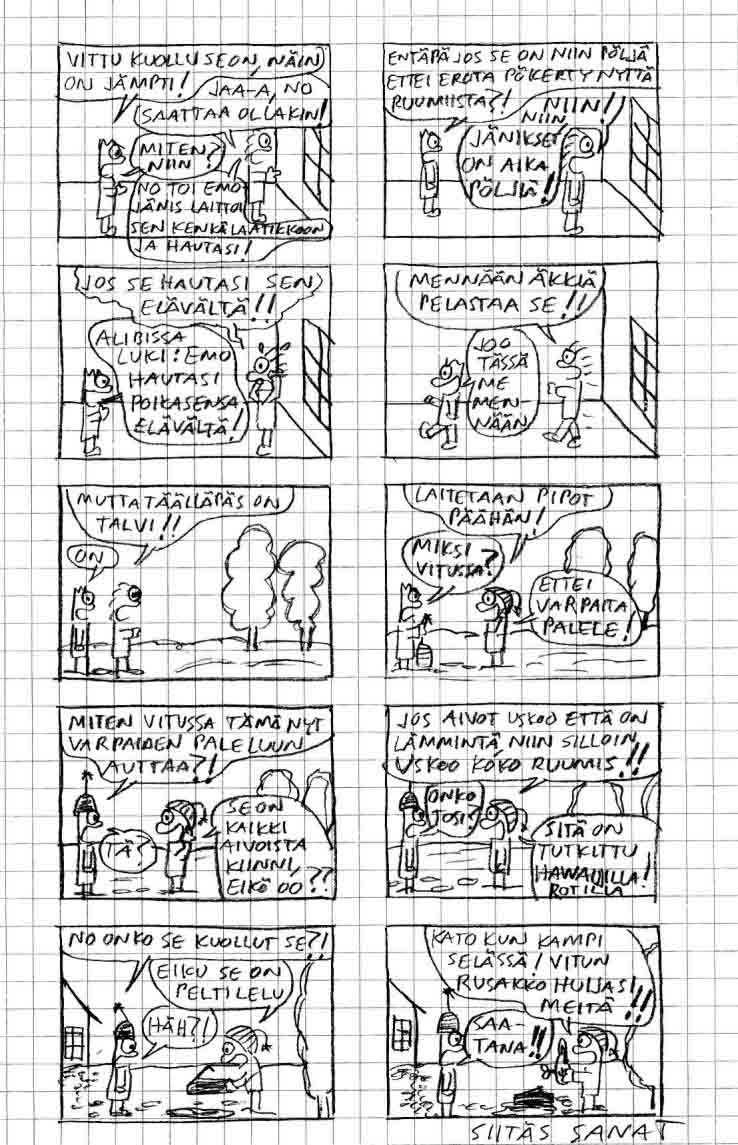 VITTU KUOLLU SE ON, NÄIN
ON JÄMPTI!
JAA-A, NO
SAATTAA OLLAKIN!
MITEN
NIIN?
NO TOI EMO
JÄNIS LAITTOI
SEN KENKÄLAATIKKOON
JA HAUTASI!
ENTÄPÄ JOS SE ON NIIN PÖLJÄ
ETTEI EROTA PÖKERTYNYTTÄ
RUUMIISTA?!
NIIN!!
NIIN
JÄNIKSET
ON AIKA
PÖLJIÄ!
JOS SE HAUTASI SEN
ELÄVÄLTÄ!!
ALIBISSA
LUKI: EMO
HAUTASI
POIKASENSA
ELÄVÄLTÄ!
MENNÄÄN ÄKKIÄ
PELASTAA SE!!
JOO
TÄSSÄ
ME
MEN-
NÄÄN
MUTTA TÄÄLLÄPÄS ON
TALVI!!
ON
LAITETAAN PIPOT
PÄÄHÄN!
MIKSI
VITUSSA?
ETTEI
VARPAITA
PALELE!
MITEN VITUSSA TÄMÄ NYT
VARPAIDEN PALELUUN
AUTTAA?!
TÄS?
SE ON
KAIKKI
AIVOISTA
KIINNI,
EIKÖ OO??
JOS AIVOT USKOO ETTÄ ON
LÄMMINTÄ, NIIN SILLOIN
USKOO KOKO RUUMIS!!!
ONKO
JOSI?
SITÄ ON
TUTKITTU
HAWAIJILLA!
ROTILLA
NO ONKO SE KUOLLUT SE?!
EIKU SE ON
PELTILELU
HÄH?!
KATO KUN KAMPI
SELÄSSÄ! VITUN
RUSAKKO HUIJASI
MEITÄ!!!
SAA-
TANA!!
SIITÄS SANAT